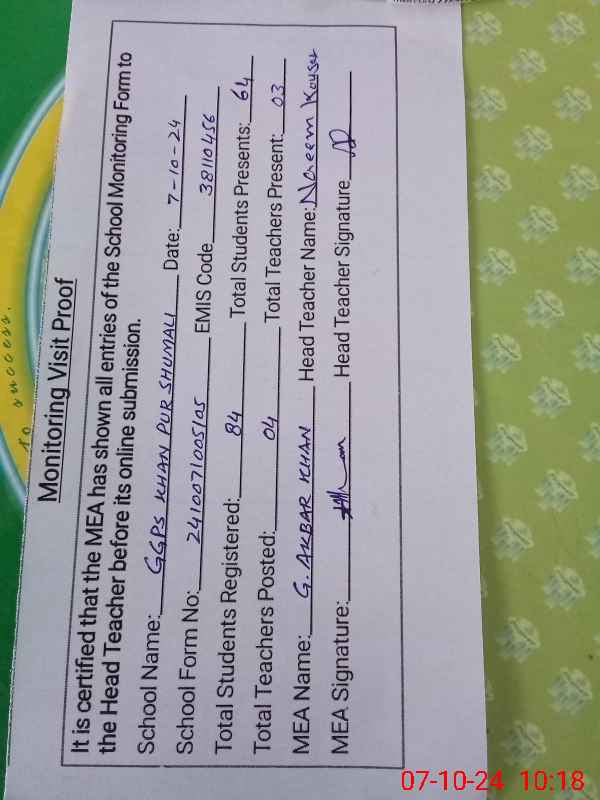 to success.
Monitoring Visit Proof
It is certified that the MEA has shown all entries of the School Monitoring Form to
the Head Teacher before its online submission.
School Name: GGPS KHAN PUR SHUMALI Date: 7-10-24
School Form No: 2410071005105 EMIS Code 38110456
Total Students Registered: 84 Total Students Presents: 64
Total Teachers Posted: 04 Total Teachers Present: 03
MEA Name: G. AKBAR KHAN Head Teacher Name: Naeem Kousar
MEA Signature: Head Teacher Signature
07-10-24 10:18